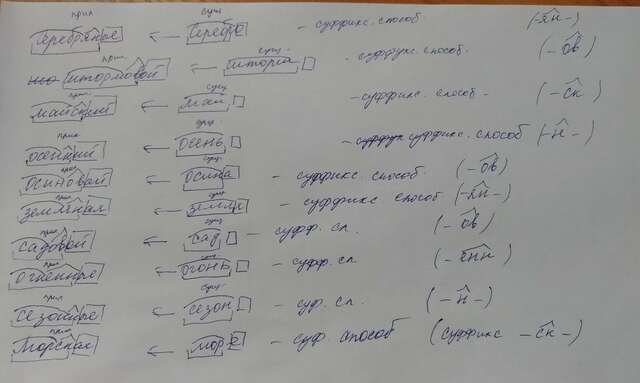 прил сущ
серебряные ← серебро - суффикс. способ (-ян-)
прил. сущ.
штормовой ← шторма - суффикс. способ. (-ов)
прил. сущ
майский ← май - суффикс. способ - (-ск)
прил. сущ.
осенний ← осень - суффикс. способ (-н-)
прил сущ.
осиновой ← осина - суффикс. способ. (-ов)
прил сущ
земляная ← земля - суффикс. способ (-ян-)
прил сущ
садовой ← сад - суфф. сп. (-ов)
прил сущ
огненные ← огонь - суфф. сп. (-енн)
прил сущ.
сезонные ← сезон - суф. сп. (-н-)
прил
Морская ← море - суф. способ (суффикс -ск-)